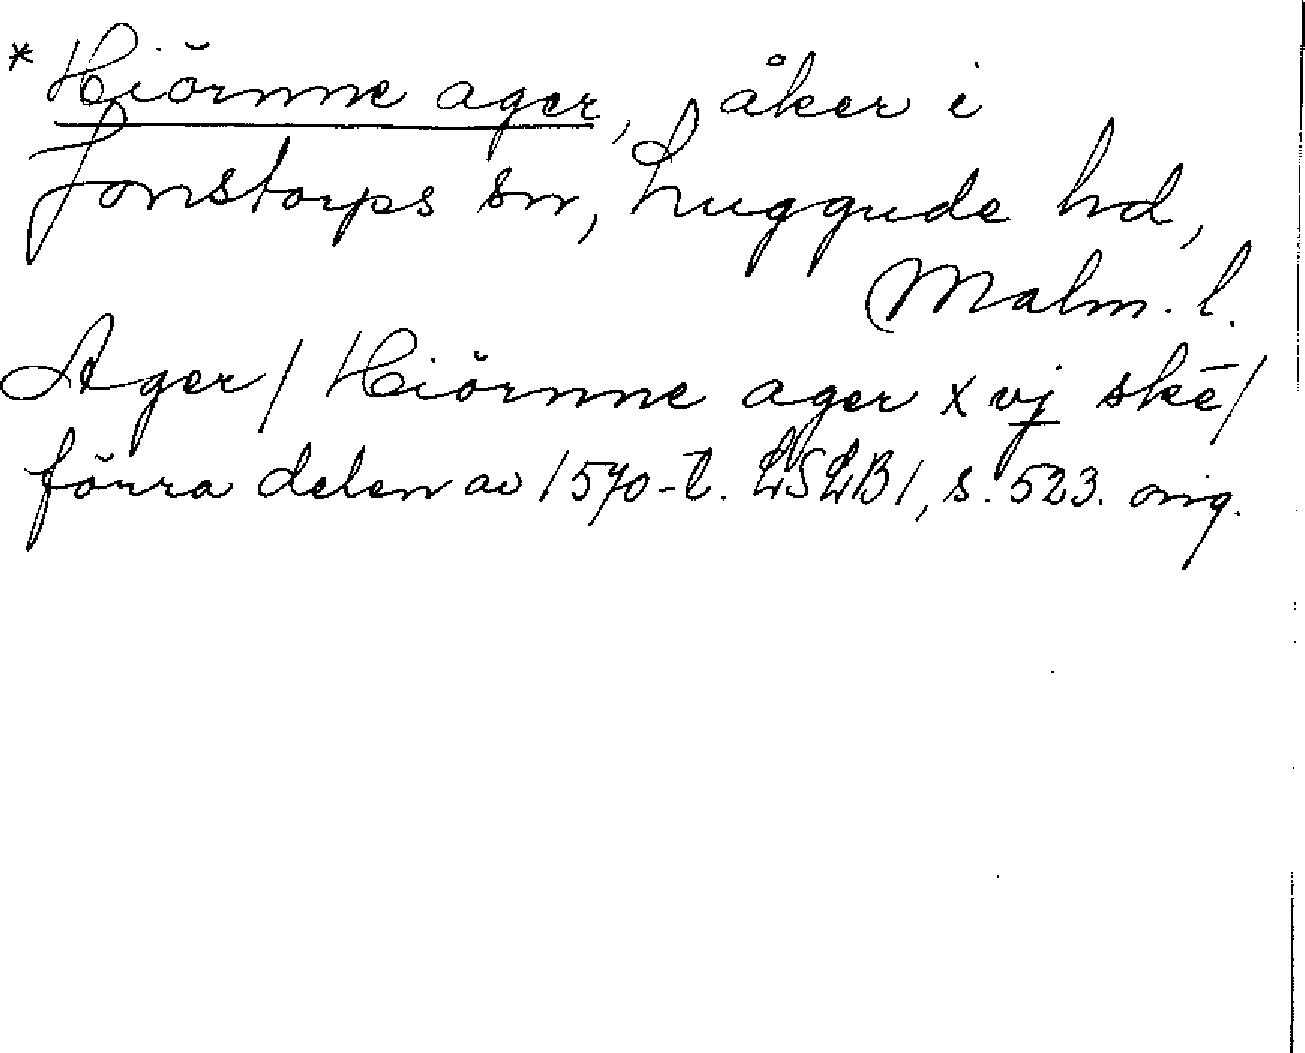 * Hiörnne ager, åker i
Jonstorps sn, Luggude hd,
Malm. l.
Ager / Hiörnne ager x vj skē /
förra delen av 1570-t. LSLB 1, s. 523. orig.